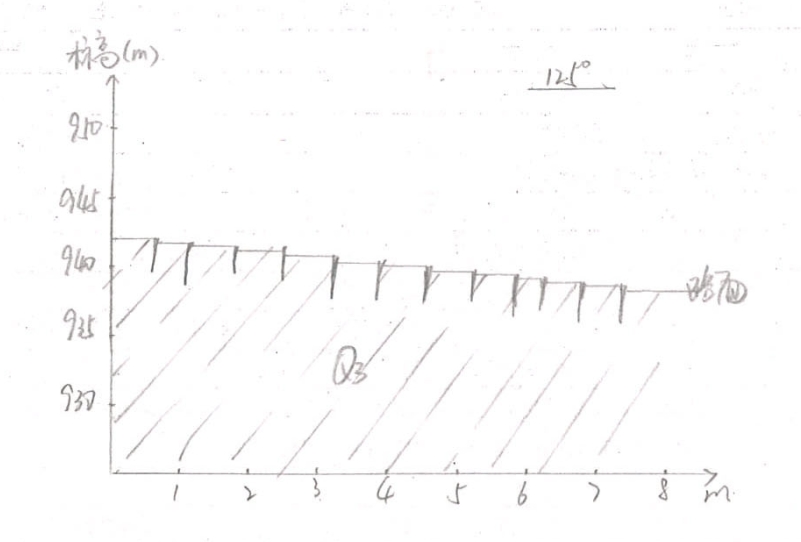 标高(m)
125°
950
945
940
935
930
路面
Q3
1 2 3 4 5 6 7 8 m